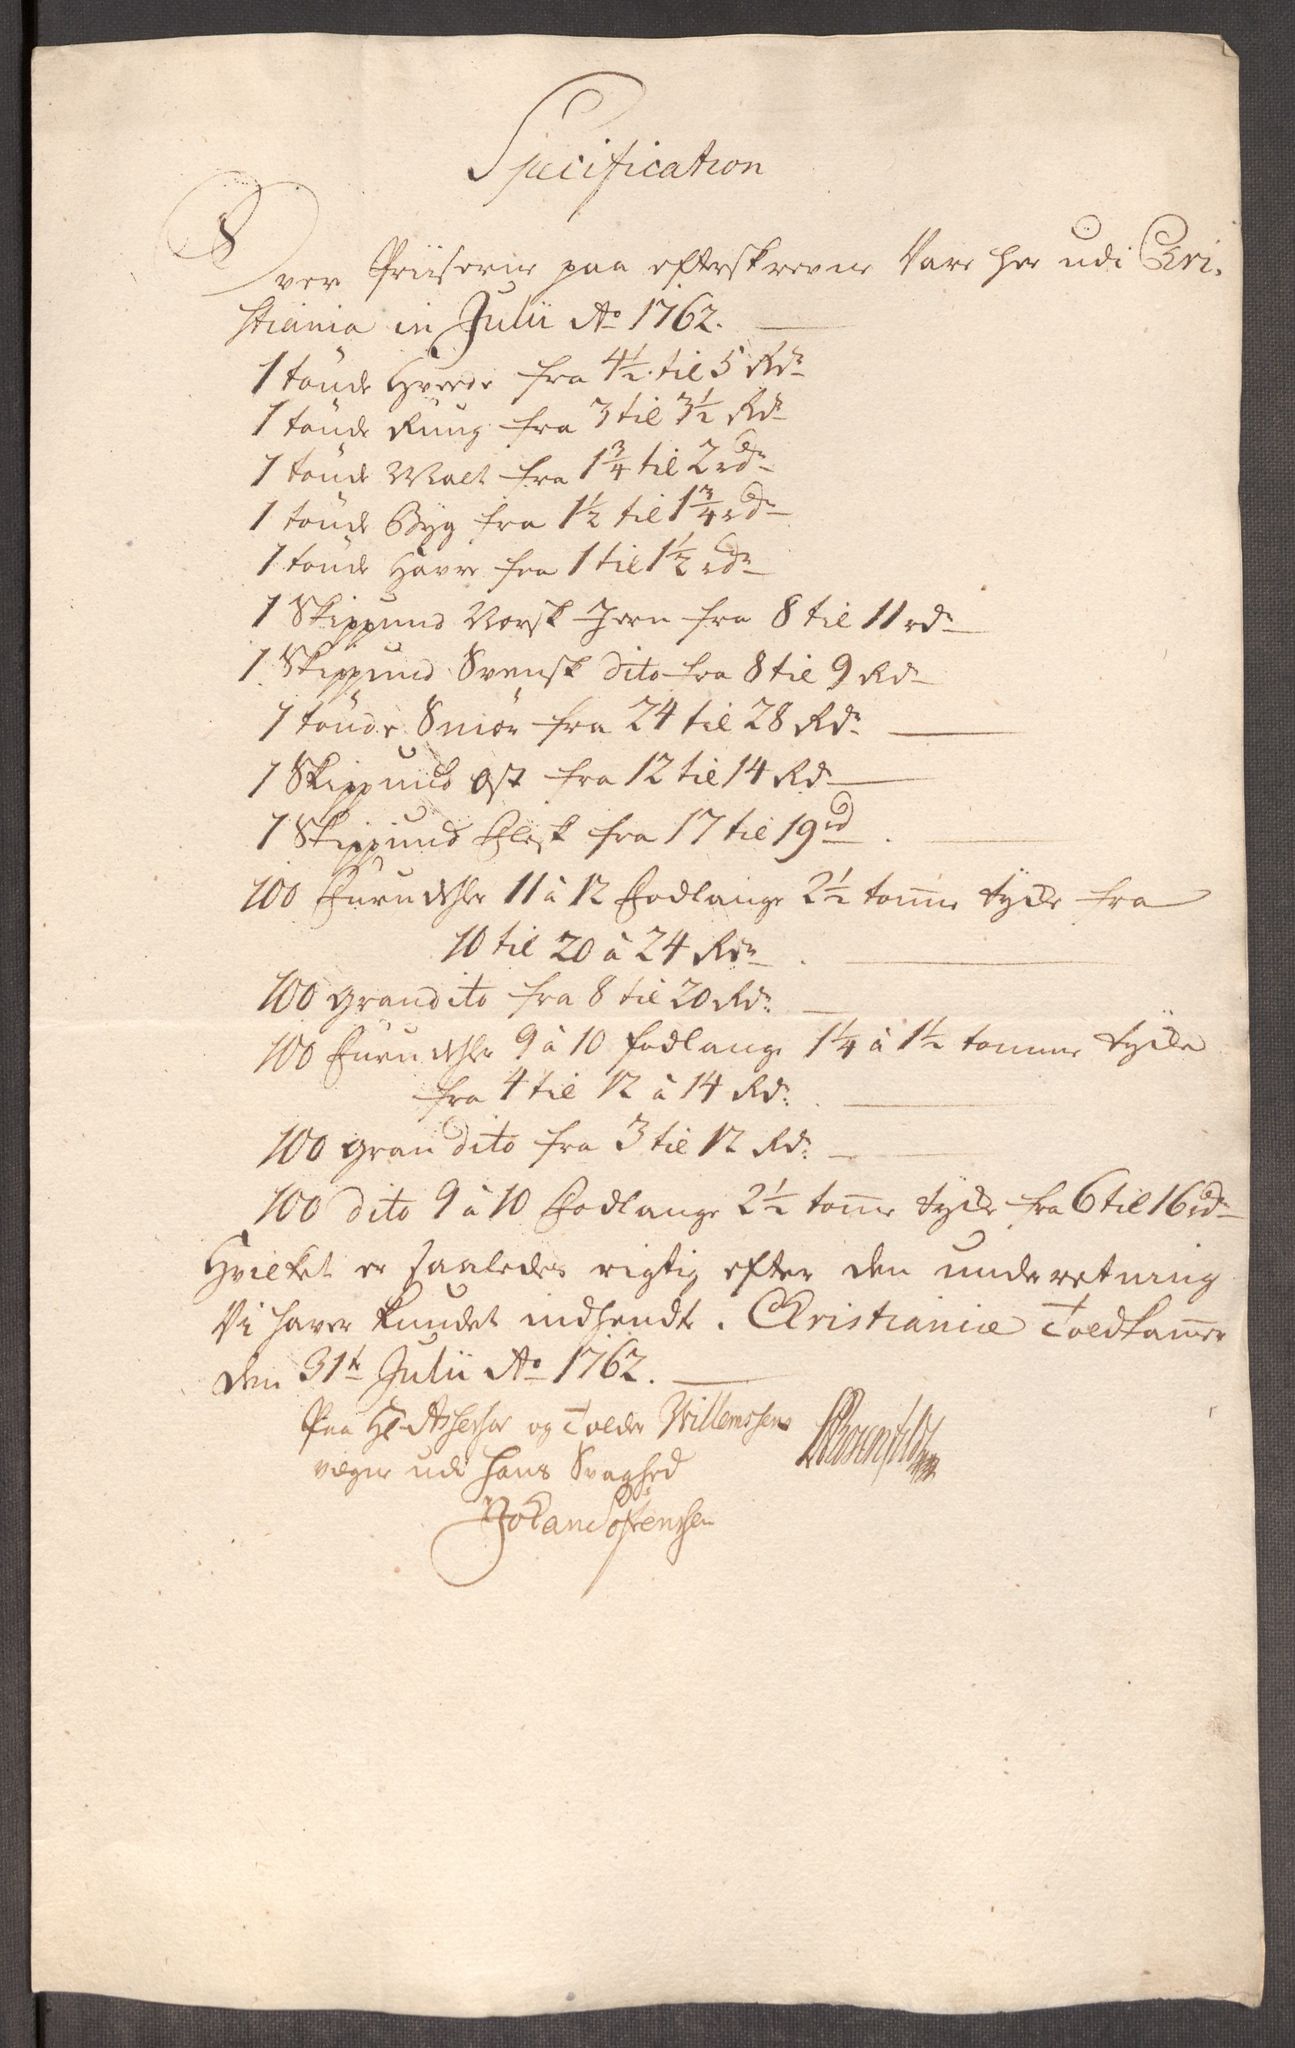 Specification
Over Priiserne paa efterskrevne Vare her udi Chri-
stiania in Julii Ao 1762.
1 tønde Hvede fra 4½ til 5 Rdr
1 tønde Rüug fra 3 til 3½ Rdr
1 tønde Malt fra 1¾ til 2 rdr
1 tønde Byg fra 1½ til 1¾ rdr
1 tønde Havre fra 1 til 1½ rdr
1 Skippund Norsk Jern fra 8 til 11 rdr
1 Skippund Svensk dito fra 8 til 9 Rdr
1 tønde Smør fra 24 til 28 Rdr
1 Skippund Ost fra 12 til 14 Rdr
1 Skippund Flesk fra 17 til 19 rd
100 Furudehler 11 à 12 Fodlange 2½ tom̅e tycke fra
10 til 20 à 24 Rdr
100 gran dito fra 8 til 20 Rdr
100 Furudehler 9 à 10 fodlange 1¼ à 1½ tomme tycke
fra 4 til 12 à 14 Rdr
100 gran dito fra 3 til 12 Rdr
100 dito 9 à 10 Fodlange 2½ tom̅e tycke fra 6 til 16 rdr
Hvilket er saaledes rigtig efter den underetning
Vi haver kundet indhendte. Christianiæ Toldkam̅er
den 31te Julii Ao 1762.
Paa Hr Assessor og Tolder Willemssens
vegne udi hans Svaghed
Johan